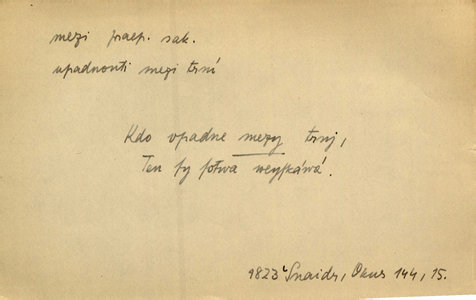 mezi praep. s ak.
upadnouti mezi trní
Kdo vpadne mezy trnj,
Ten ſy ſotwa weyſkáwá.
1823 Šnaidr, Okus 144, 15.